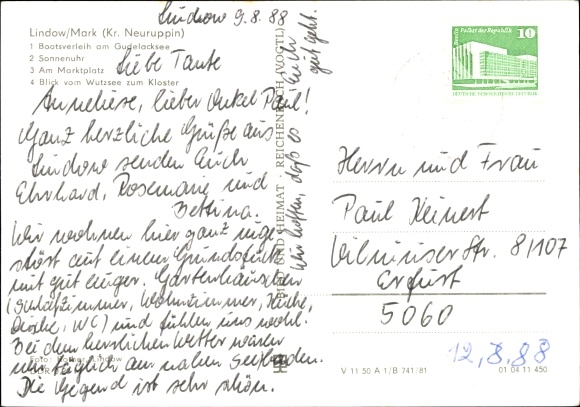 Lindow 9.8.88
Lindow/Mark (Kr. Neuruppin)
1 Bootsverleih am Gudelacksee
2 Sonnenuhr
3 Am Marktplatz
4 Blick vom Wutzsee zum Kloster
Liebe Tante
Anneliese, lieber Onkel Paul!
Ganz herzliche Grüße aus
Lindow senden Euch
Ehrhard, Rosemarie und
Bettina.
Wir wohnen hier ganz unge-
stört auf einem Grundstück
mit gut einger. Gartenhäuschen
(Schlafzimmer, Wohnzimmer, Küche,
Dusche, WC) und fühlen uns wohl.
Bei dem herrlichen Wetter waren
wir täglich am nahen See baden.
Die Gegend ist sehr schön.
Wir hoffen, daß es Euch
gut geht.
BILD UND HEIMAT · REICHENBACH (VOGTL)
Berlin Palast der Republik
10
DEUTSCHE DEMOKRATISCHE REPUBLIK
Herrn und Frau
Paul Keinert
Vilniuser Str. 81/107
Erfurt
5060
12.8.88
Foto: Lindow
DDR
V 11 50 A 1/B 741/81
01 04 11 450